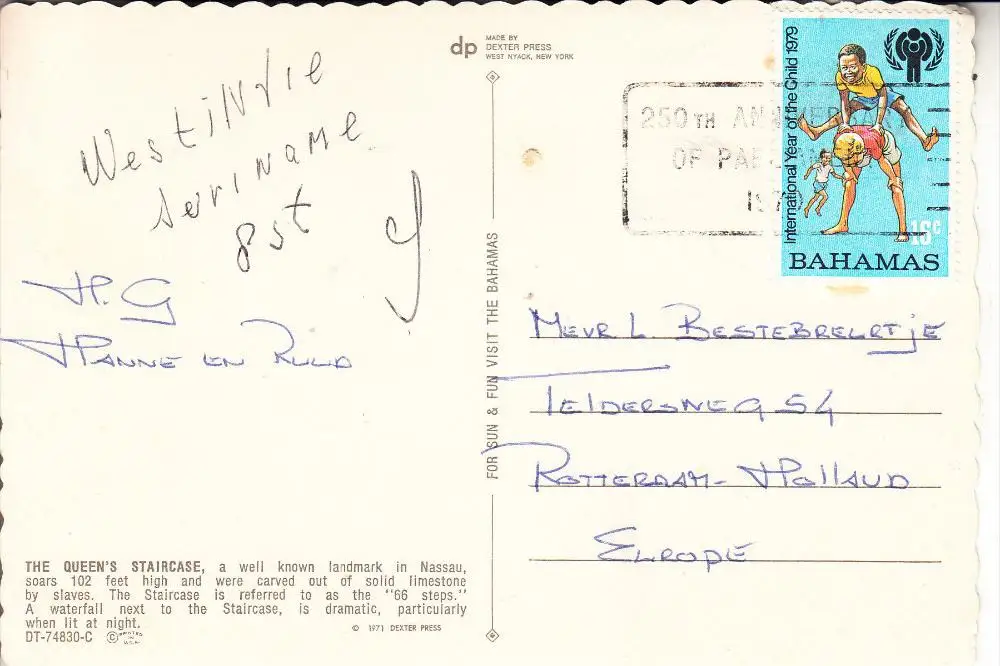 WestiNdie
suriname
8st
H.G
Hanne en Ruud
THE QUEEN'S STAIRCASE, a well known landmark in Nassau,
soars 102 feet high and were carved out of solid limestone
by slaves. The Staircase is referred to as the "66 steps."
A waterfall next to the Staircase, is dramatic, particularly
when lit at night.
DT-74830-C © PRINTED IN U.S.A.
© 1971 DEXTER PRESS
dp
MADE BY
DEXTER PRESS
WEST NYACK, NEW YORK
FOR SUN & FUN VISIT THE BAHAMAS
250TH ANNIVERSARY
OF
International Year of the Child 1979
16c
BAHAMAS
Mevr L. Bestebreurtje
Teldersweg 54
Rotterdam- Holland
Europe